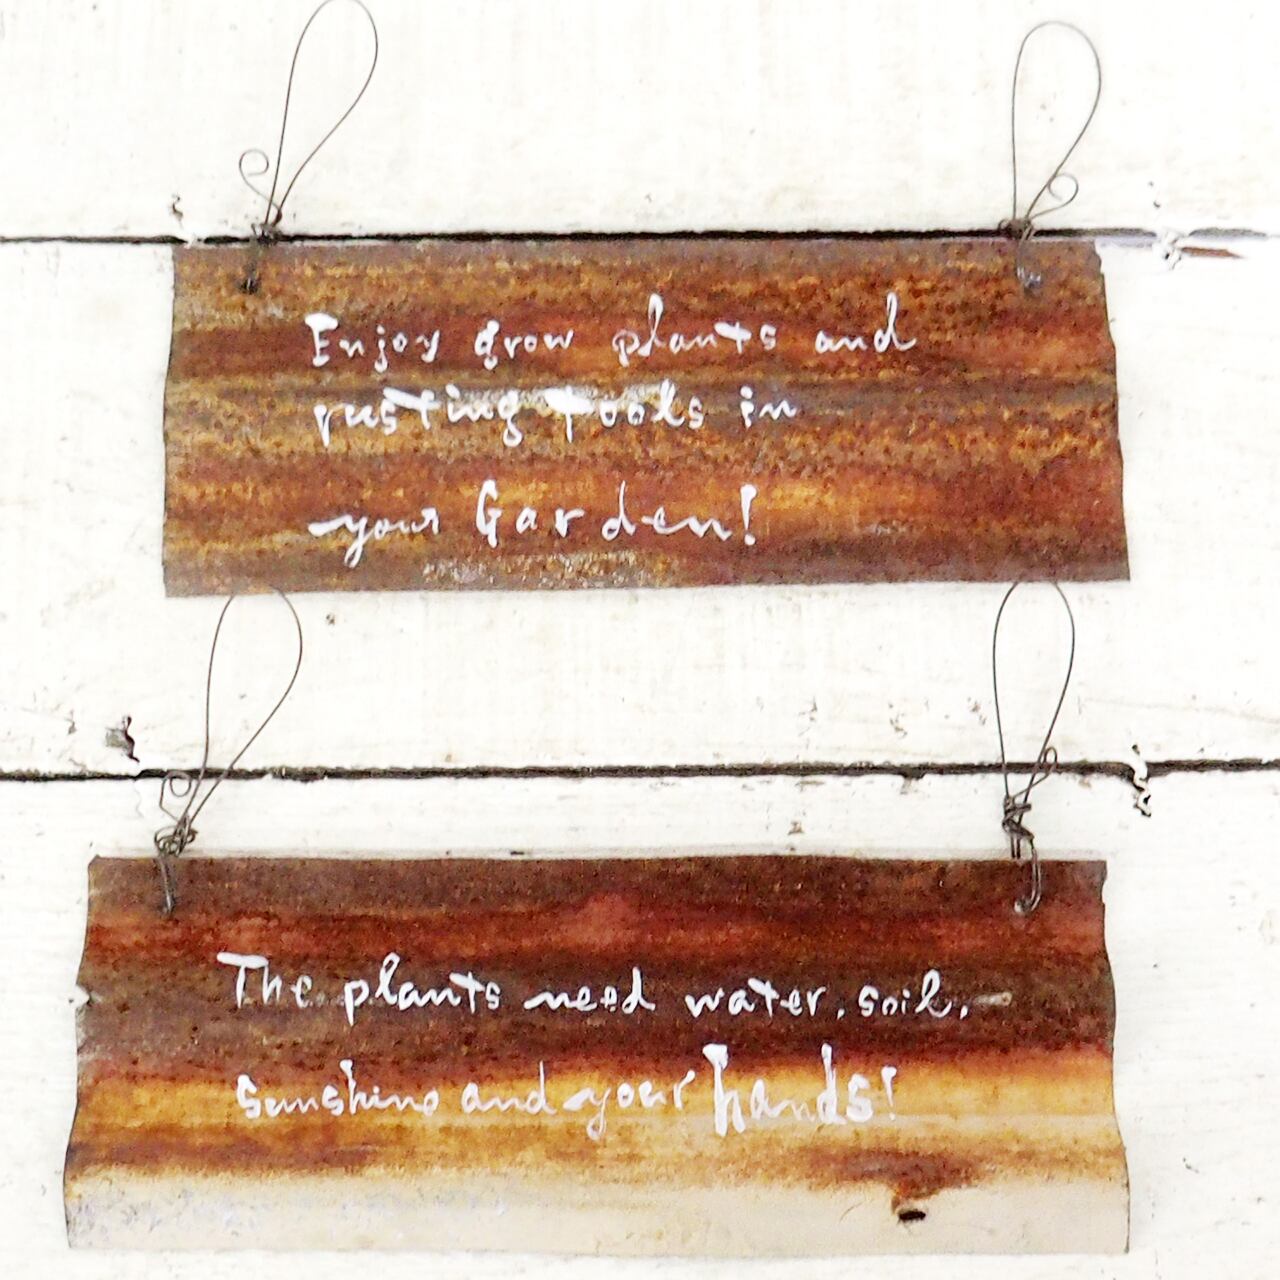 Enjoy grow plants and
rusting tools in
your Garden!
The plants need water, soil,
sunshine and your hands!